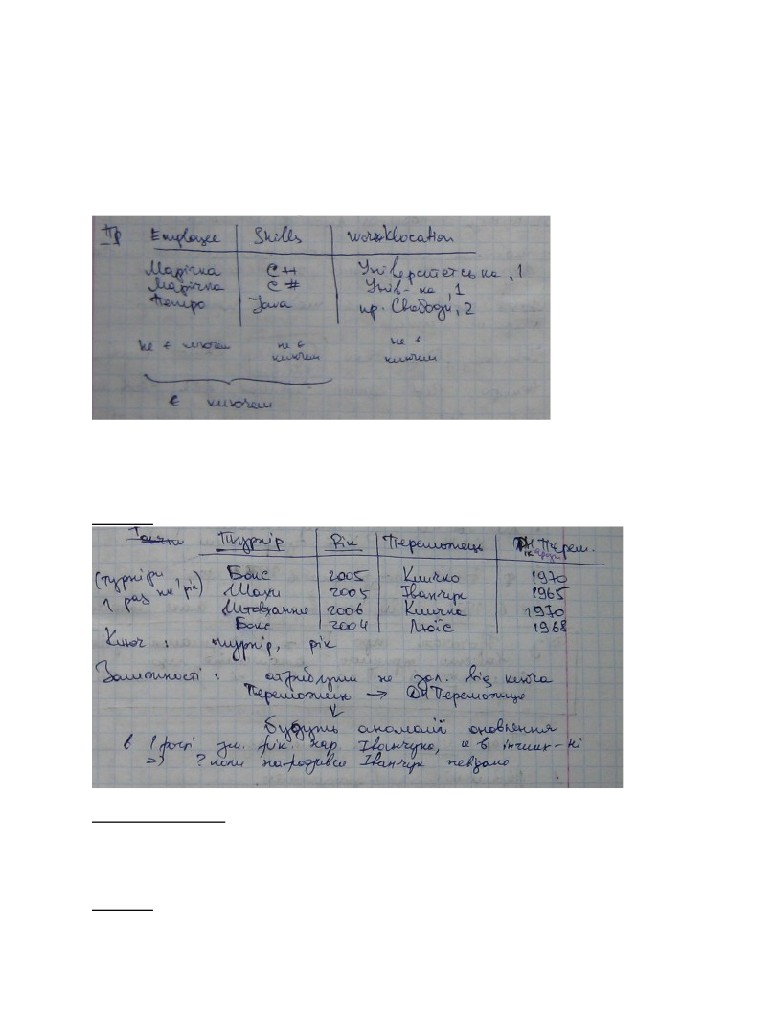 Пр Employee Skills Worklocation
Марічка C++ Університетська, 1
Марічка C# Унів-ка, 1
Петро Java пр. Свободи, 2
не є ключем не є ключем не є ключем
є ключем
Турнір Рік Переможець Рік народж. Перем.
(турніри 1 раз на рік)
Бокс 2005 Кличко 1970
Шахи 2005 Іванчук 1965
Митовхання 2006 Кличко 1970
Бокс 2004 Люїс 1968
Ключ: турнір, рік
Залежності: атрибути не зал. від ключа
Переможець → ДН Переможця
Будуть аномалії оновлення
в 1 рядку зм. рік. нар. Іванчука, а в інших - ні
=> ? коли народився Іванчук невідомо